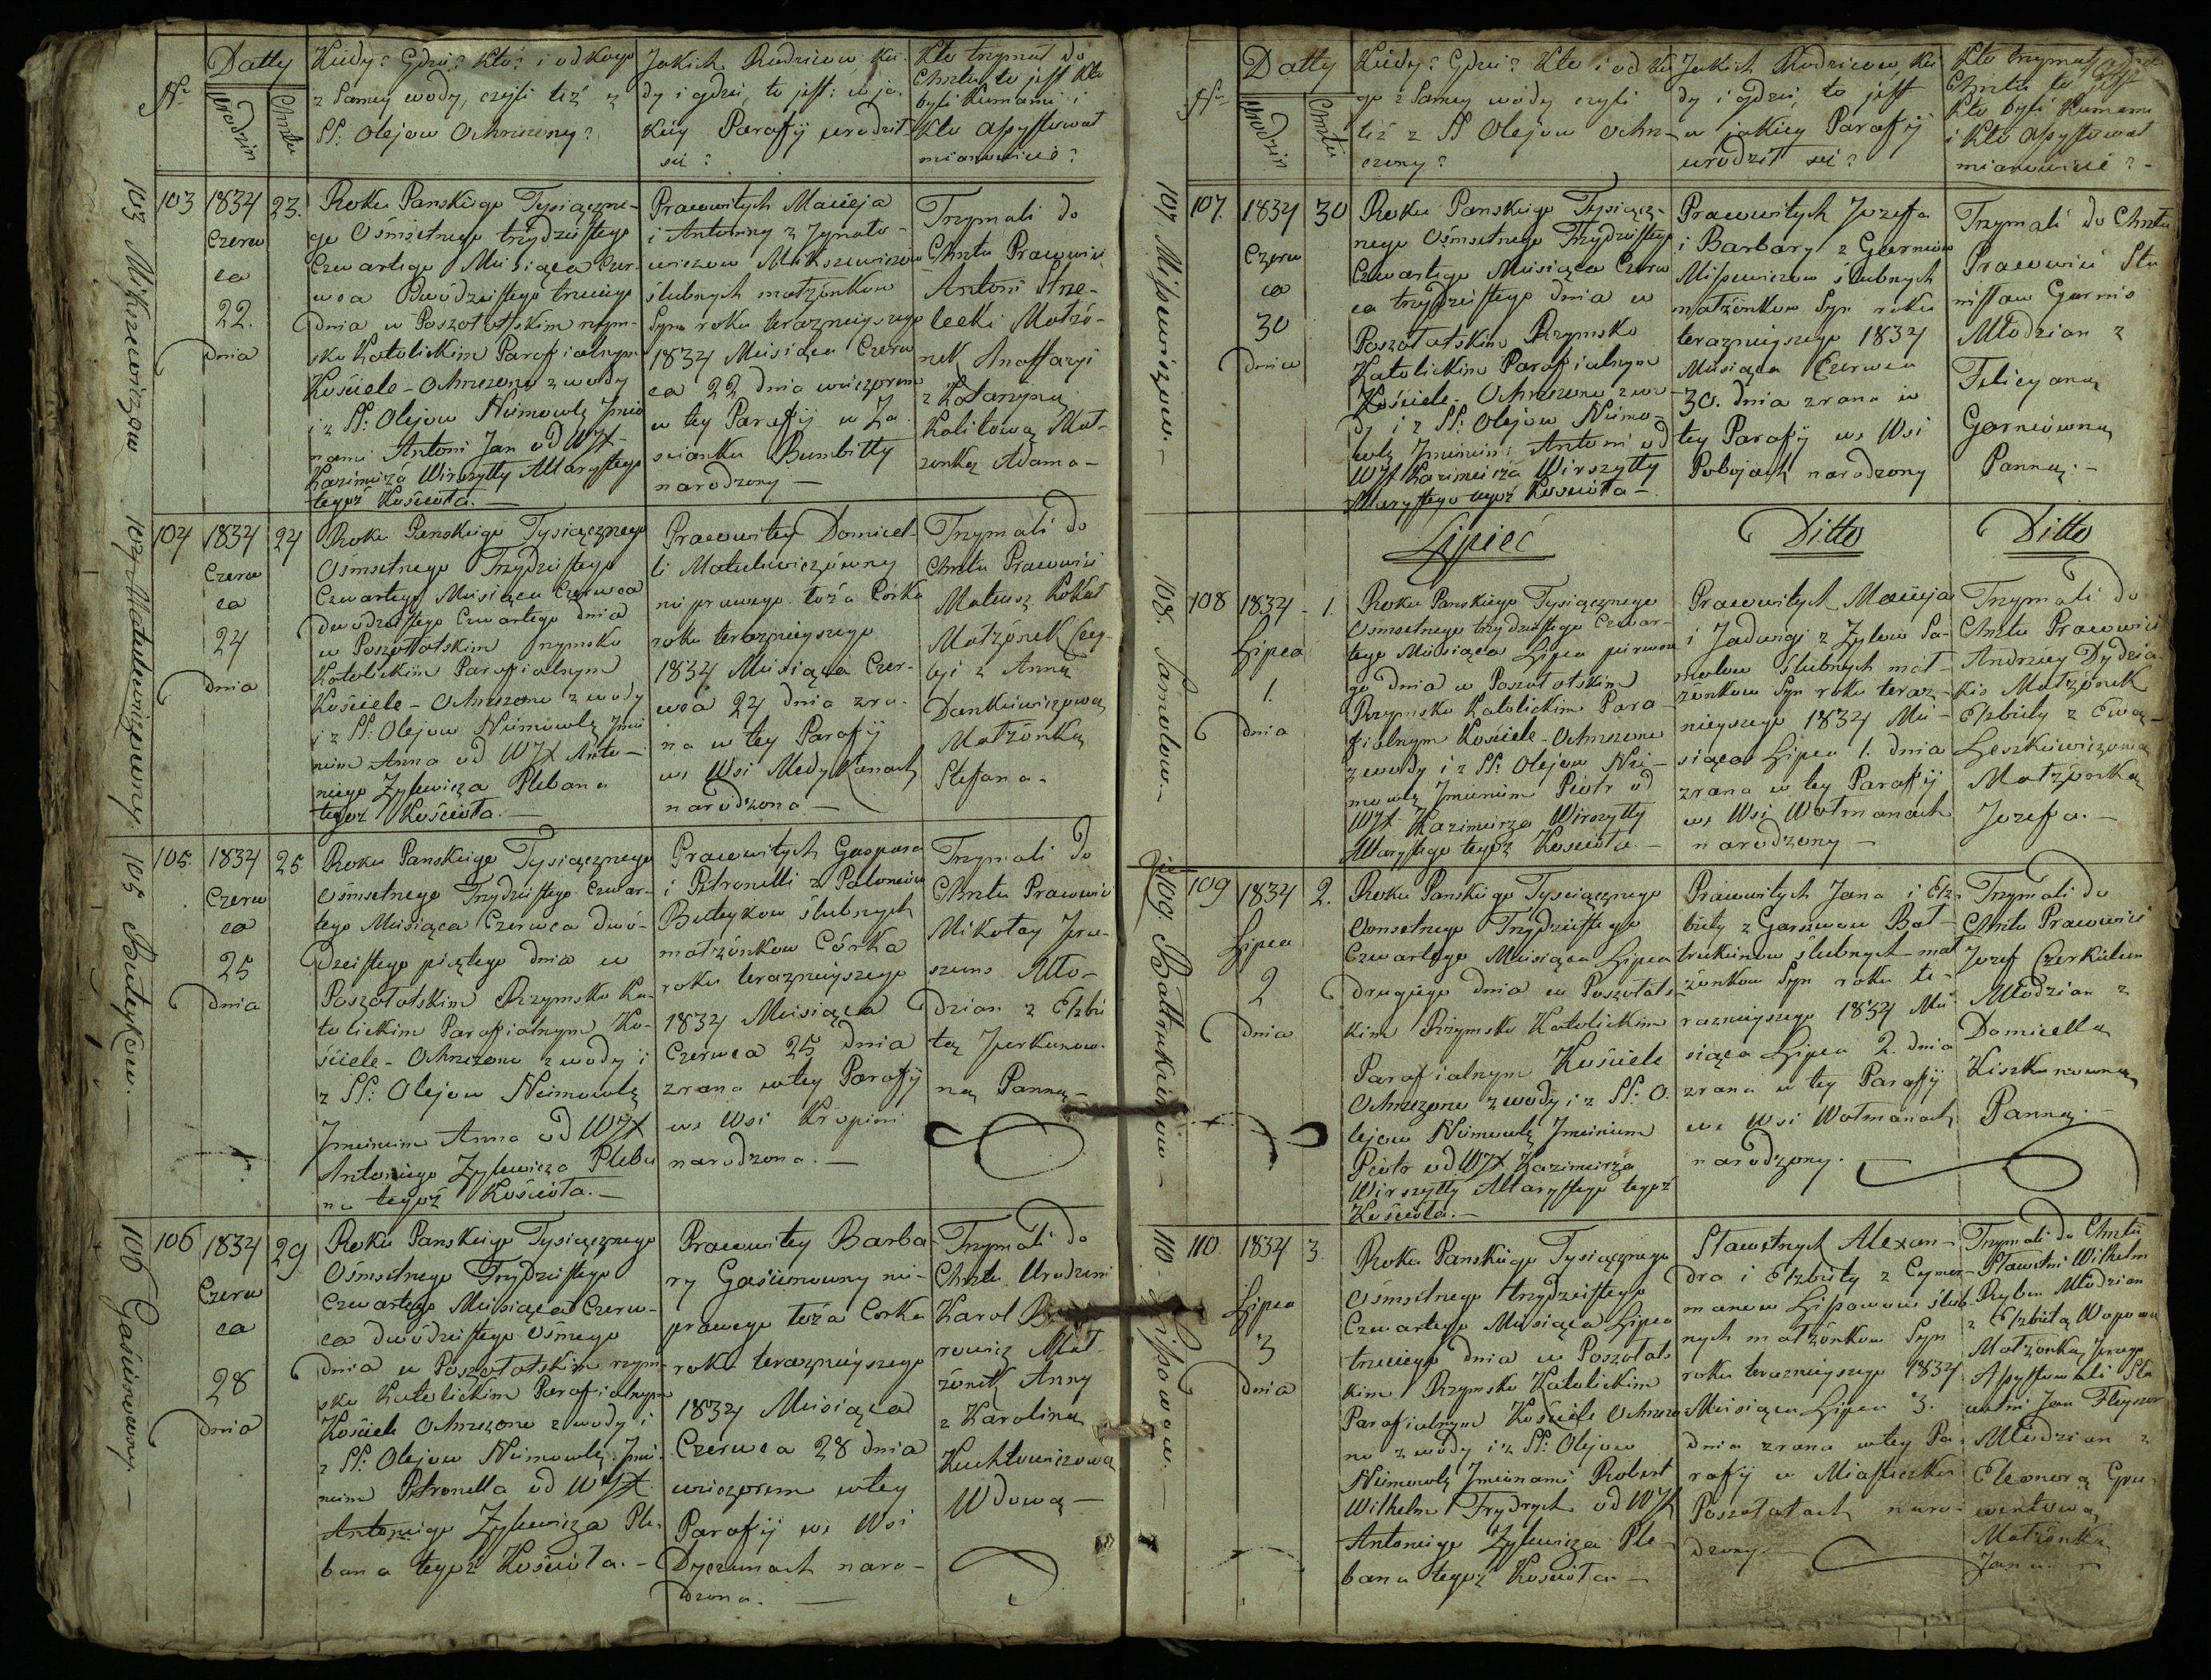 Nº
Datty
urodzin
Chrztu
Kiedy? Gdzie? Kto? i od kogo
z Samey wody, czyli też z
SS: Olejow Ochrzczony?
Jakich Rodzicow, kie-
dy i gdzie, to jest: w ja-
kiey Parafij urodził
się?
Kto trzymał do
Chrztu to jest kto
byli Kumami i
Kto assystował
mianowicie?
103 Mikszewiczow
103
1834
Czerw
ca
22.
dnia
23.
Roku Panskiego Tysiączne-
go Osmsetnego trzydziestego
Czwartego Miesiąca Czer-
wca Dwódziestego trzeciego
dnia w Poszołotskim rzym-
sko Katolickim Parafialnym
Kościele - Ochrzczono z wody
i z SS: Olejow Niemowlę Jmio
nami Antoni Jan od WJX
Kazimierza Wirszytty Altarystego
tegoż Kościoła.—
Prawowitych Macieja
i Antoniny z Zynato-
wiczow Mikszewiczow
ślubnych małżonkow
Syn roku terazneyszego
1834 Miesiąca Czerw
ca 22 dnia wieczorem
w tey Parafij w Za-
scianku Bumbitty
narodzony —
Trzymali do
Chrztu Prawowici
Antoni Strze-
lecki Małżo-
nek Anastazyi
z Katarzyną
Kalitową Mał-
żonką Adama —
104 Matulewiczowny.
104
1834
Czerw
ca
24
dnia
24
Roku Panskiego Tysiącznego
Osmsetnego Trzydziestego
Czwartego Miesiąca Czerwca
dwodziestego Czwartego dnia
w Poszołotskim rzymsko
Katolickim Parafialnym
Kościele - Ochrzczono z wody
i z SS: Olejow Niemowlę Jmie
niem Anna od WJX Anto-
niego Zylewicza Plebana
tegoż Kościoła.—
Prawowitey Domicel-
li Matulewiczówny
nieprawego łoża Córka
roku terazneyszego
1834 Miesiąca Czer-
wca 24 dnia zra-
na w tey Parafij
we Wsi Medykanach
narodzona —
Trzymali do
Chrztu Prawowici
Mateusz Rokał
Małżonek Cecy-
lyi z Anną
Dankiewiczową
Małżonką
Stefana.
105 Buteykow.—
105.
1834
Czerw
ca
25
dnia
25
Roku Panskiego Tysiącznego
Osmsetnego Trzydziestego Czwar-
tego Miesiąca Czerwca dwó-
dziestego piątego dnia w
Poszołotskim Rzymsko Ka-
tolickim Parafialnym Ko-
ściele - Ochrzczono z wody i
z SS: Olejow Niemowlę
Jmieniem Anna od WJX
Antoniego Zylewicza Pleba
na tegoż Kościoła.—
Prawowitych Gaspara
i Petronelli z Patoniow
Buteykow ślubnych
małżonkow Córka
roku terazneyszego
1834 Miesiąca
Czerwca 25 dnia
zrana w tey Parafij
we Wsi Kropini
narodzona.—
Trzymali do
Chrztu Prawowici
Mikołay Jwa-
szuns Mło-
dzian z Elżbie
tą Jurkunow-
ną Panną—
106 Gasiunowny.—
106
1834
Czerw
ca
28
dnia
29
Roku Panskiego Tysiącznego
Osmsetnego Trzydziestego
Czwartego Miesiąca Czerw-
ca dwódziestego Osmego
dnia w Poszołotskim rzym-
sko Katolickim Parafialnym
Kościele Ochrzczono z wody i
z SS: Olejow Niemowlę Jmie-
niem Petronella od WJX
Antoniego Zylewicza Ple-
bana tegoż Kościoła.—
Prawowitey Barba-
ry Gasiunowny nie-
prawego łoża Corka
roku terazneyszego
1834 Miesiąca
Czerwca 28 dnia
wieczorem w tey
Parafij we Wsi
Dyrzunach naro-
dzona.—
Trzymali do
Chrztu Urodzeni
Karol
rowicz Mał-
żonek Anny
z Karoliną
Kuchtowiczową
Wdową —
Nº
Datty
Urodzin
Chrztu
Kiedy? Gdzie? Kto i od ko
go z Samey wody czyli
też z SS Olejow Ochrz-
czony?
Jakich Rodzicow, kie
dy i gdzie, to jest
w jakiey Parafij
urodził się?
Kto trzymał do
Chrztu to jest
Kto byli Kumami
i Kto Assystował
mianowicie?
107 Missewiczow.—
107.
1834
Czerw
ca
30
dnia
30
Roku Panskiego Tysiącz-
nego Osmsetnego Trzydziestego
Czwartego Miesiąca Czerw
ca trzydziestego dnia w
Poszołotskim Rzymsko
Katolickim Parafialnym
Kościele - Ochrzczono z wo-
dy i z SS: Olejow Niemo-
wlę Jmieniem Antoni od
WJX Kazimierza Wirszytty
Altarystego tegoż Kościoła—
Prawowitych Jozefa
i Barbary z Gierniow
Missewiczow ślubnych
małżonkow Syn roku
terazneyszego 1834
Miesiąca Czerwca
30. dnia zrana w
tey Parafij we Wsi
Pobojach narodzony
Trzymali do Chrztu
Prawowici Sta
nisław Garnis
Młodzian z
Felicyaną
Garniówną
Panną.—
Lipiec
Ditto
Ditto
108. Samolow.—
108
1834
Lipca
1.
dnia
1.
Roku Panskiego Tysiącznego
Osmsetnego trzydziestego Czwar-
tego Miesiąca Lipca pierwsze
go dnia w Poszołotskim
Rzymsko Katolickim Para-
fialnym Kościele - Ochrzczono
z wody i z SS: Olejow Nie-
mowlę Jmieniem Piotr od
WJX Kazimierza Wirszytty
Altarystego tegoż Kościoła.—
Prawowitych Macieja
i Jadwigi z Zylow Sa-
molow Slubnych mał-
żonkow Syn roku teraz-
neyszego 1834 Mie-
siąca Lipca 1. dnia
zrana w tey Parafij
we Wsi Wotmanach
narodzony —
Trzymali do
Chrztu Prawowici
Andrzey Dydzia-
kis Małżonek
Elżbiety z Ewą
Leszkiewiczową
Małżonką
Jozefa.—
109. Bałtrukunow—
109
1834
Lipca
2
dnia
2.
Roku Panskiego Tysiącznego
Osmsetnego Trzydziestego
Czwartego Miesiąca Lipca
drugiego dnia w Poszołots-
kim Rzymsko Katolickim
Parafialnym Kościele
Ochrzczono z wody i z SS: O-
lejow Niemowlę Jmieniem
Piotr od WJX Kazimierza
Wirszytty Altarystego tegoż
Kościoła.—
Prawowitych Jana i Elż-
biety z Garszwow Bał-
trukunow ślubnych mał
żonkow Syn roku te-
razneyszego 1834 Mie
siąca Lipca 2. dnia
zrana w tey Parafij
we Wsi Wotmanach
narodzony.—
Trzymali do
Chrztu Prawowici
Jozef Czerkielun
Młodzian z
Domicellą
Kiszkunowną
Panną.—
110. Lissowow.—
110.
1834
Lipca
3
dnia
3.
Roku Panskiego Tysiącznego
Osmsetnego trzydziestego
Czwartego Miesiąca Lipca
trzeciego dnia w Poszołots-
kim Rzymsko Katolickim
Parafialnym Kościele Ochrzczo
no z wody i z SS: Olejow
Niemowlę Jmionami Robert
Wilhelm Frydrych od WJX
Antoniego Zylewicza Ple-
bana tegoż Kościoła.—
Sławetnych Alexan-
dra i Elżbiety z Cymer-
manow Lissowow ślub-
nych małżonkow Syn
roku terazneyszego 1834
Miesiąca Lipca 3.
dnia zrana w tey Pa-
rafij w Miasteczku
Poszołotach naro-
dzony.—
Trzymali do Chrztu
Sławetni Wilhelm
Młodzian
z Elżbietą
Małżonką
Assystowali Sła
wetni Jan Fleyszer
Młodzian z
Eleonorą
Małżonką
Jana.